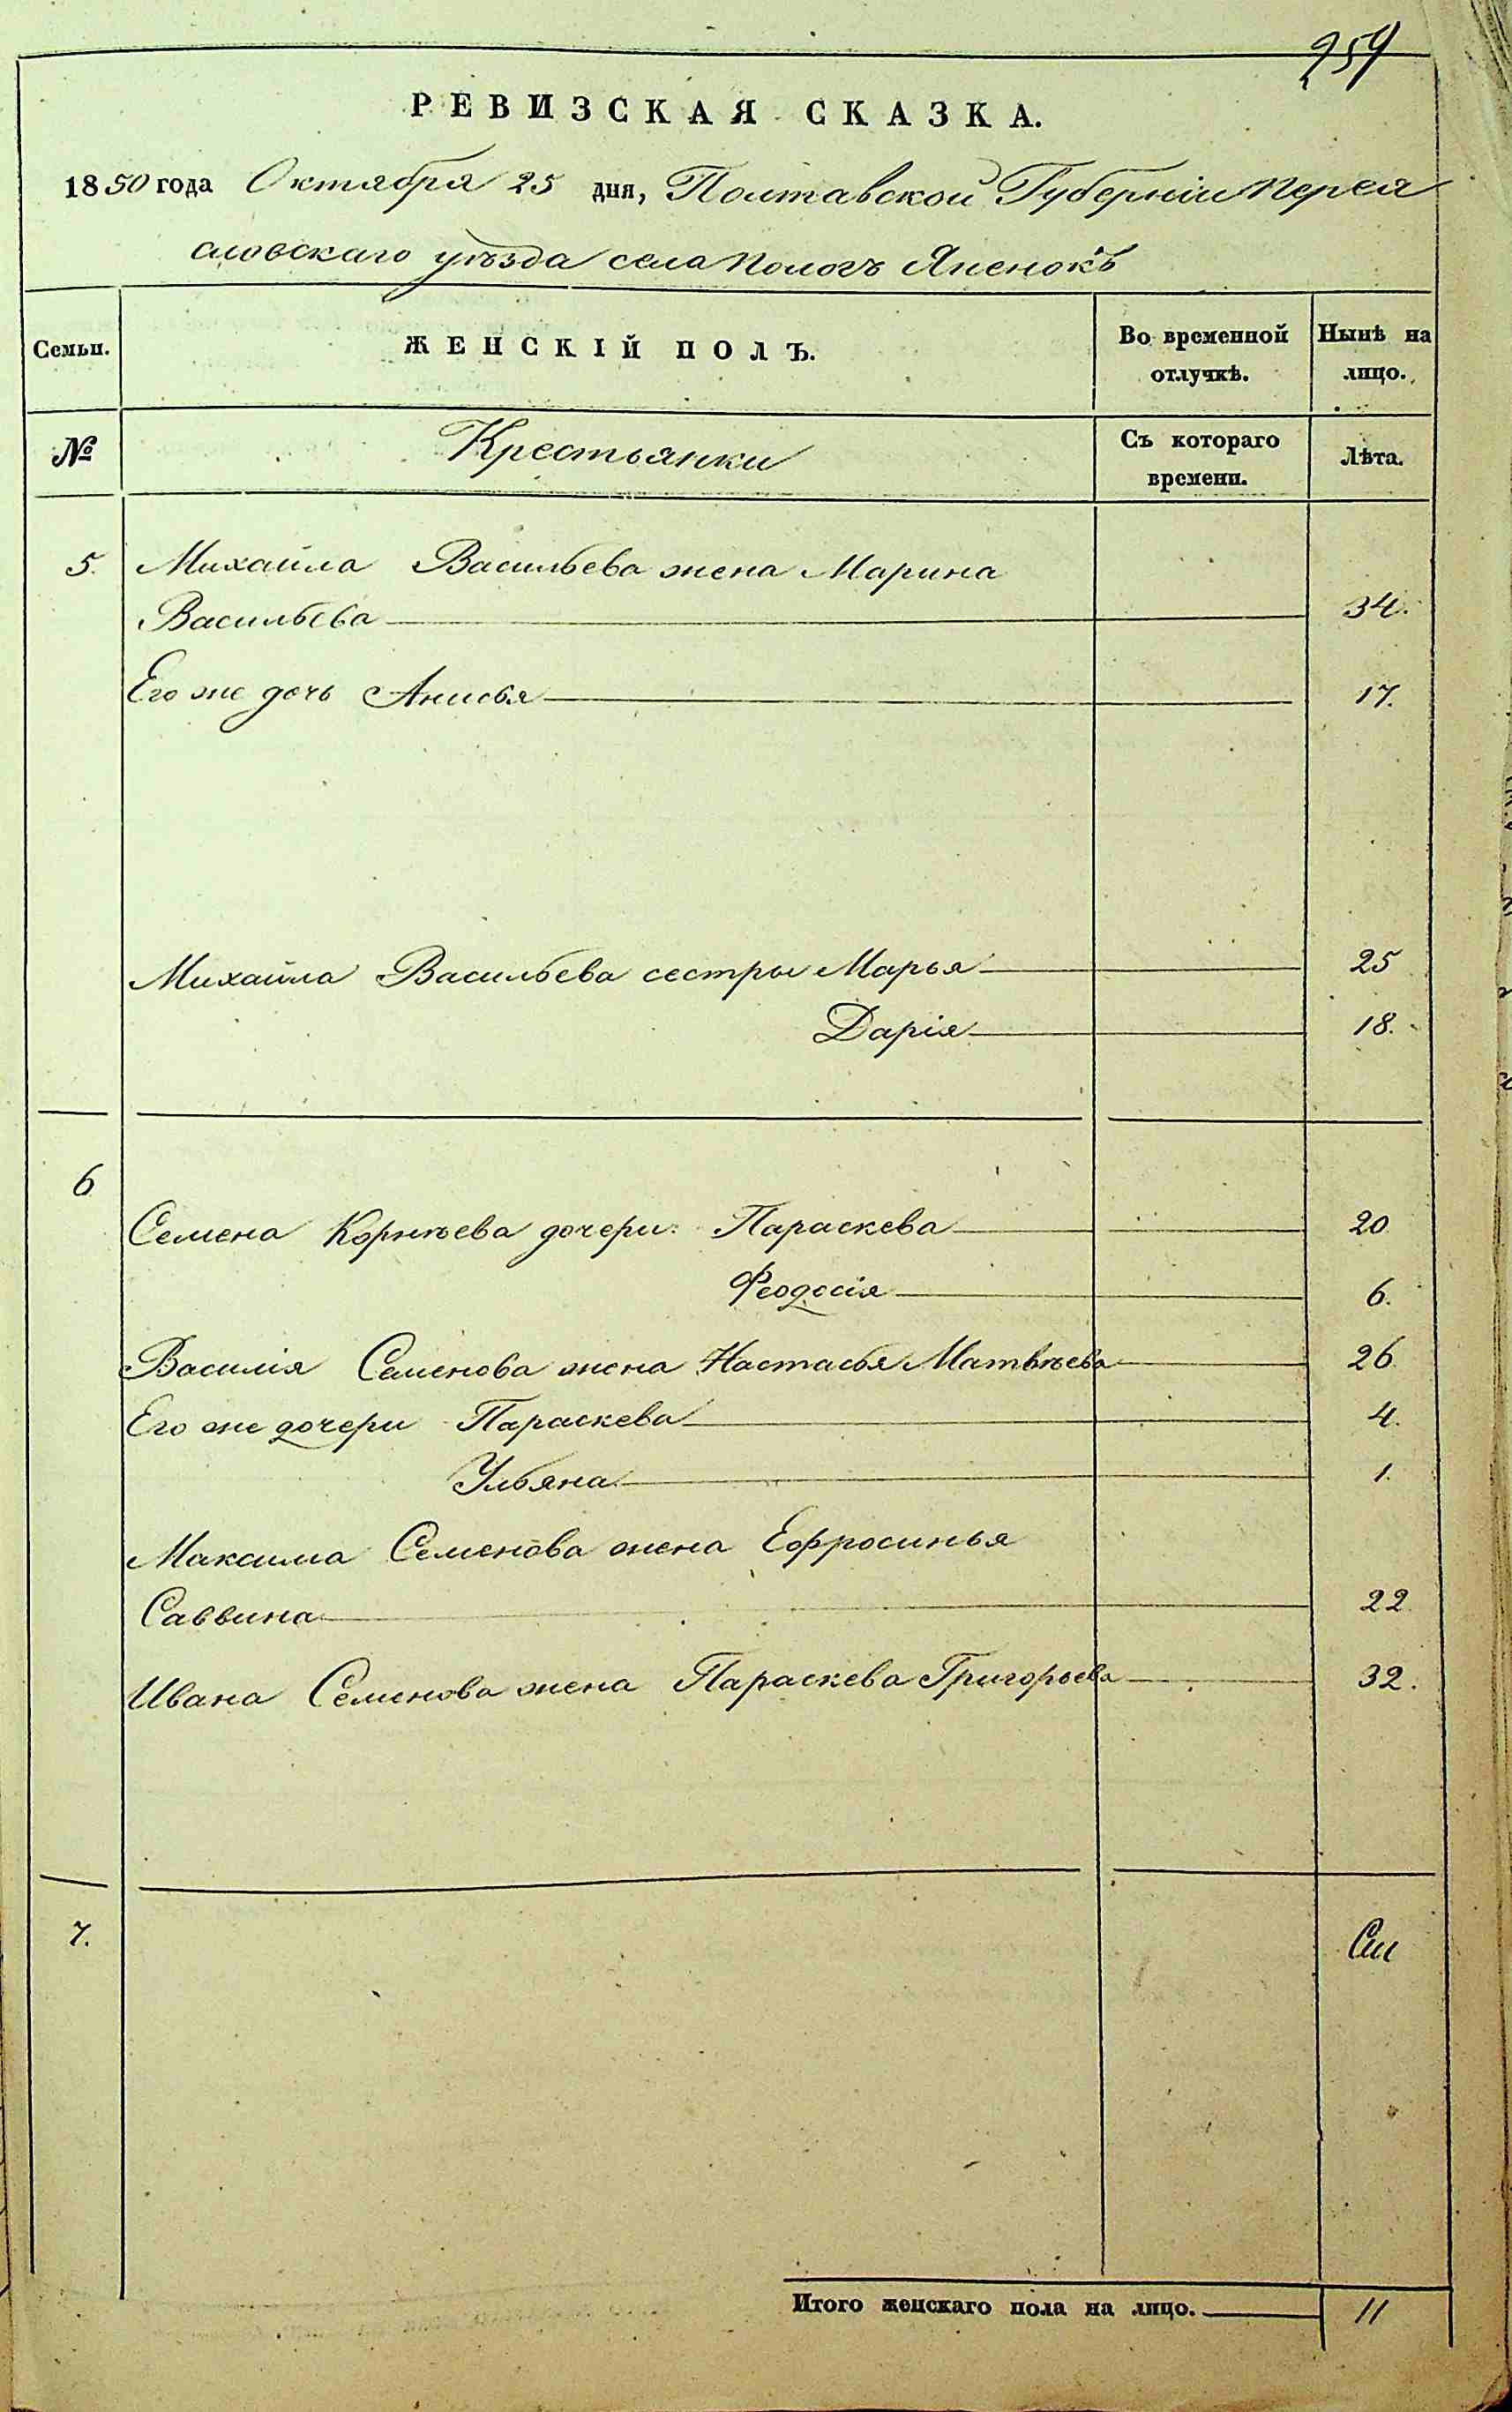 259
РЕВИЗСКАЯ СКАЗКА.
1850 года Октября 25 дня, Полтавской Губерніи Перея
словскаго уѣзда села Пологъ Яненокъ
Семьи. ЖЕНСКІЙ ПОЛЪ. Во временной отлучкѣ. Нынѣ на лицо.
№ Крестьянки Съ котораго времени. Лѣта.
5. Михайла Васильева жена Марина
Васильева 34.
Его же дочь Анисья 17.
Михайла Васильева сестры Марья 25
Дарія 18.
6
Семена Корнѣева дочери: Параскева 20
Феодосія 6.
Василія Семенова жена Настасья Матвѣева 26
Его же дочери Параскева 4.
Ульяна 1.
Максима Семенова жена Ефросинья
Саввина 22
Ивана Семенова жена Параскева Григорьева 32.
7.
Итого женскаго пола на лицо. 11